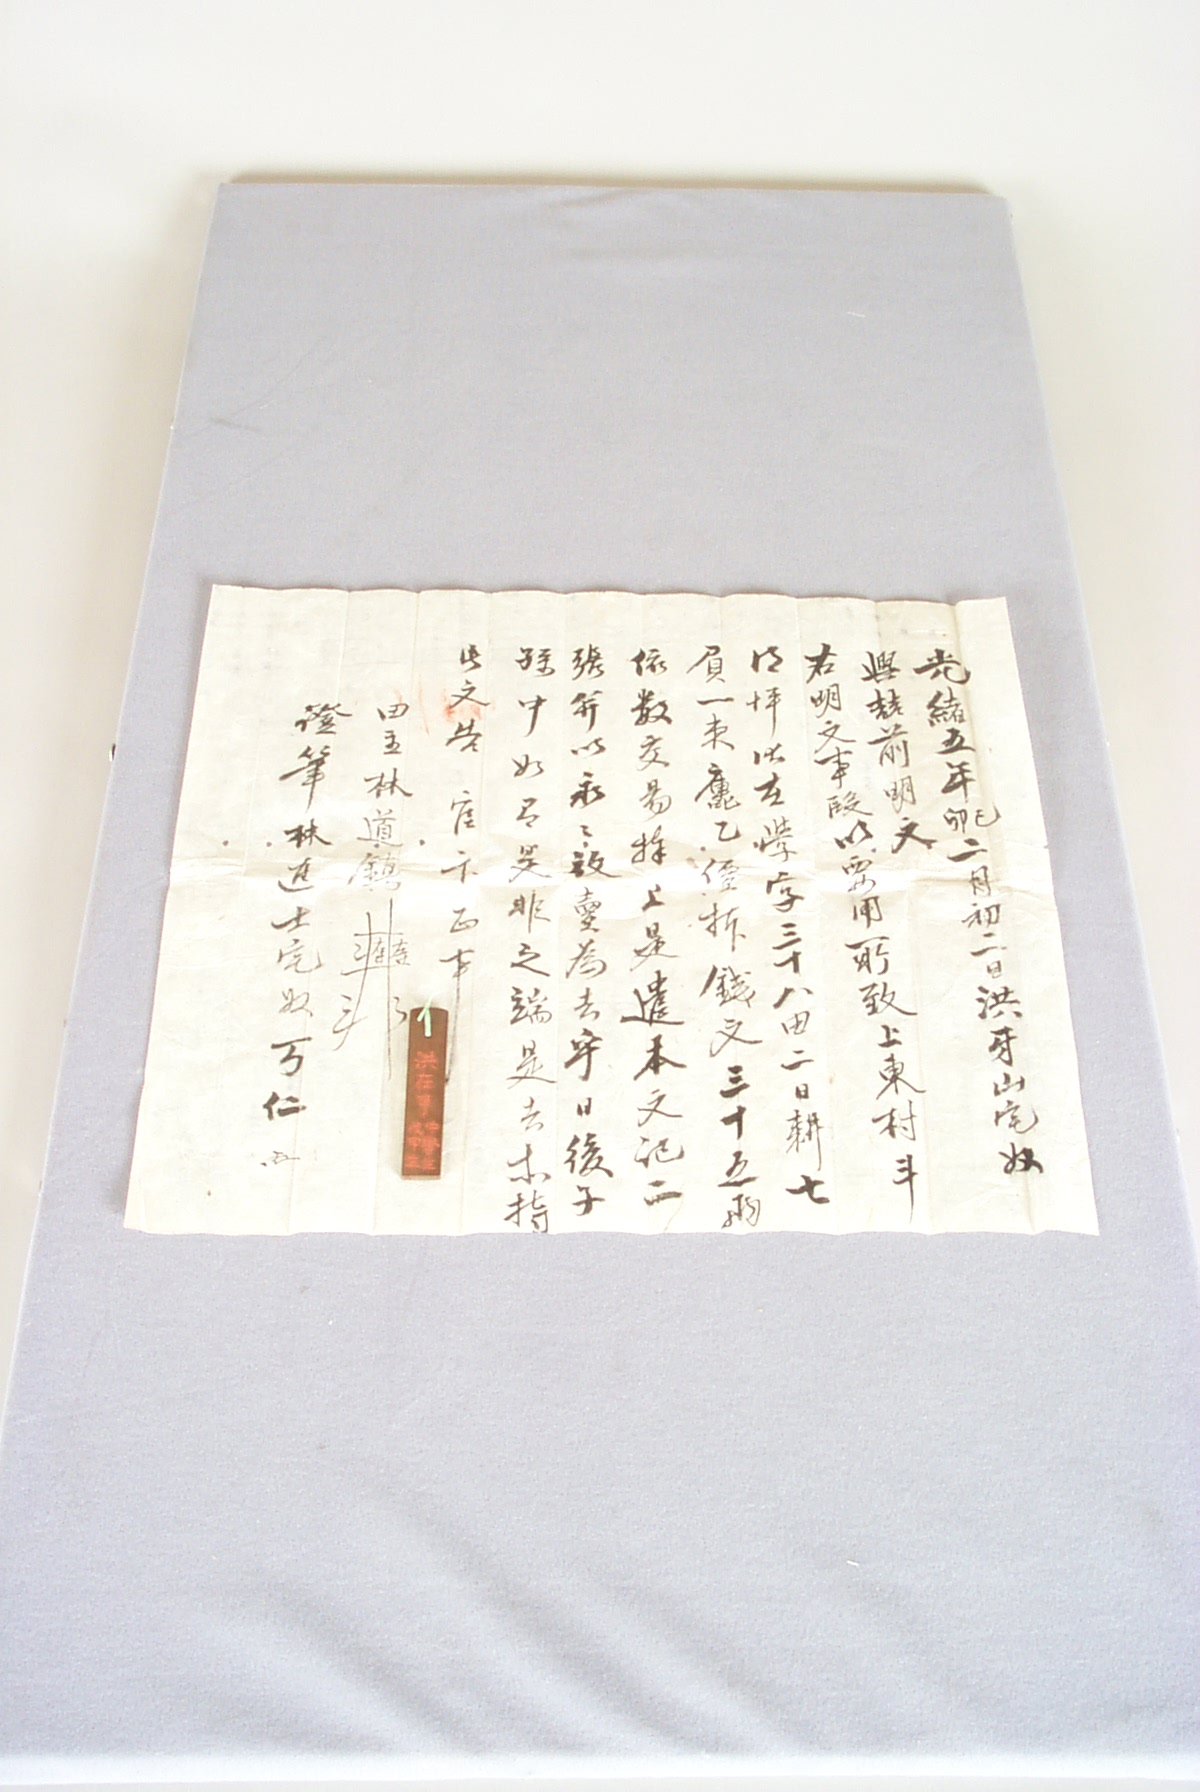 光緒五年己卯二月初二日洪牙山宅奴
興喆前明文
右明文事段以要用所致上東村斗
浔坪伏在學字三十八田二日耕七
負一束㐣乙價折錢文三十五兩
依數交易捧上是遣本文記二
張并以永永放賣爲去乎日後子
孫中如有是非之端是去等持
此文告官卞正事
田主林道鎭
證筆林進士宅奴丁仁
洪在